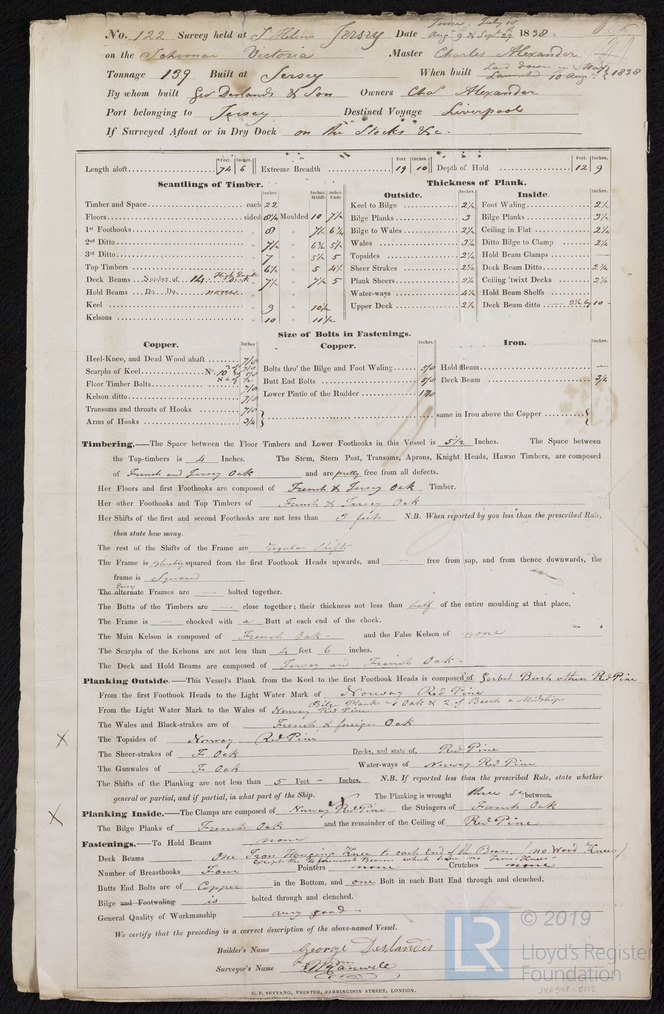 No. 122 Survey held at St Heliers Jersey Date June, July 18 Aug 9 & Sept 29 1838
on the Schooner Victoria Master Charles Alexander
Tonnage 139 Built at Jersey When built Laid down in May Launched 10 Augt 1838
By whom built Geo Deslandes & Son Owners Chas Alexander
Port belonging to Jersey Destined Voyage Liverpool
If Surveyed Afloat or in Dry Dock on the Stocks &c.
Length aloft Feet. 74 Inches. 6 Extreme Breadth Feet. 19 Inches. 10 Depth of Hold Feet. 12 Inches. 9
Scantlings of Timber. Thickness of Plank.
Outside. Inside.
Timber and Space each 22 Keel to Bilge 2½ Foot Waling 2½
Floors sided 8½ Moulded 10 7½ Bilge Planks 3 Bilge Planks 3½
1st Foothooks 8 Bilge to Wales 2½ Ceiling in Flat 2½
2nd Ditto 7½ Wales 3½ Ditto Bilge to Clamp 2½
3rd Ditto 7 Topsides 2½ Hold Beam Glamps
Top Timbers 6½ 5 Sheer Strakes 2½ Deck Beam Ditto 2¼
Deck Beams Number of 14 7½ Plank Sheers Ceiling 'twixt Decks 2½
Hold Beams Do. Do. none Water-ways Hold Beam Shelfs
Keel 9 10½ Upper Deck 2½ Deck Beam ditto
Kelsons 10 11½
Size of Bolts in Fastenings.
Copper. Copper. Iron.
Heel-Knee, and Dead Wood abaft 7/8
Scarphs of Keel No. 10 Bolts thro' the Bilge and Foot Waling 5/8 Hold Beam
Floor Timber Bolts Butt End Bolts 5/8 Deck Beam 3/4
Kelson ditto 7/8 Lower Pintle of the Rudder
Transoms and throats of Hooks 7/8
Arms of Hooks 3/4 same in Iron above the Copper
Timbering.—The Space between the Floor Timbers and Lower Foothooks in this Vessel is 5½ Inches. The Space between
the Top-timbers is 4 Inches. The Stem, Stern Post, Transoms, Aprons, Knight Heads, Hawse Timbers, are composed
of French and Jersey Oak and are pretty free from all defects.
Her Floors and first Foothooks are composed of French & Jersey Oak Timber.
Her other Foothooks and Top Timbers of French & Jersey Oak
Her Shifts of the first and second Foothooks are not less than 5 feet N.B. When reported by you less than the prescribed Rule,
then state how many.
The rest of the Shifts of the Frame are Regular Shifts
The Frame is squared from the first Foothook Heads upwards, and free from sap, and from thence downwards, the
frame is Squared
Every
The alternate Frames are bolted together.
The Butts of the Timbers are close together; their thickness not less than half of the entire moulding at that place.
The Frame is chocked with a Butt at each end of the chock.
The Main Kelson is composed of French Oak and the False Kelson of none
The Scarphs of the Kelsons are not less than 4 feet 6 inches.
The Deck and Hold Beams are composed of Jersey and French Oak
Planking Outside.—This Vessel's Plank from the Keel to the first Foothook Heads is composed of Garbot Beech others Red Pine
From the first Foothook Heads to the Light Water Mark of Norway Red Pine
From the Light Water Mark to the Wales of Norway Red Pine Bilge Planks 4 Oak & 2 of Beech a Midships
The Wales and Black-strakes are of French & foreign Oak
The Topsides of Norway Red Pine
The Sheer-strakes of F. Oak Decks, and state of, Red Pine
The Gunwales of F. Oak Water-ways of Norway Red Pine
The Shifts of the Planking are not less than 5 Feet Inches. N.B. If reported less than the prescribed Rule, state whether
general or partial, and if partial, in what part of the Ship. The Planking is wrought three Sts between.
Planking Inside.—The Clamps are composed of Norway Red Pine the Stringers of French Oak
The Bilge Planks of French Oak and the remainder of the Ceiling of Red Pine
Fastenings.—To Hold Beams none
Deck Beams One Iron Hanging Knee to each End of the Beam (no Wood Knees)
except the foremost Beams which have no Iron Knees
Number of Breasthooks Four Pointers none Crutches none
Butts End Bolts are of Copper in the Bottom, and one Bolt in each Butt End through and clenched.
Bilge and Footwaling is bolted through and clenched.
General Quality of Workmanship very good
We certify that the preceding is a correct description of the above-named Vessel.
Builder's Name George Deslandes
Surveyor's Name
C. F. SEYFANG, PRINTER, FARRINGDON STREET, LONDON.
LR © 2019
Lloyd's Register
Foundation